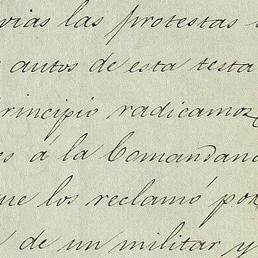 vias las protestas
autos de esta testa
principio radicamos
es á la Comandan
ue los reclamó por
de un militar y